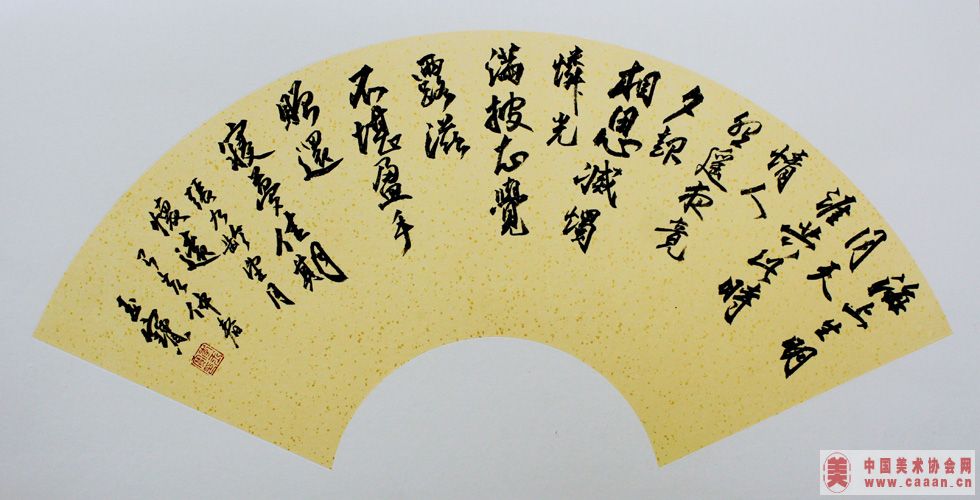 海上生明
月天
涯共此時
情人
怨遥夜竟
夕起
相思滅燭
憐光
滿披衣覺
露滋
不堪盈手
贈還
寢夢佳期
張九齡望月
懷遠丁亥仲春
玉寶
美 中国美术协会网
www.caaan.cn